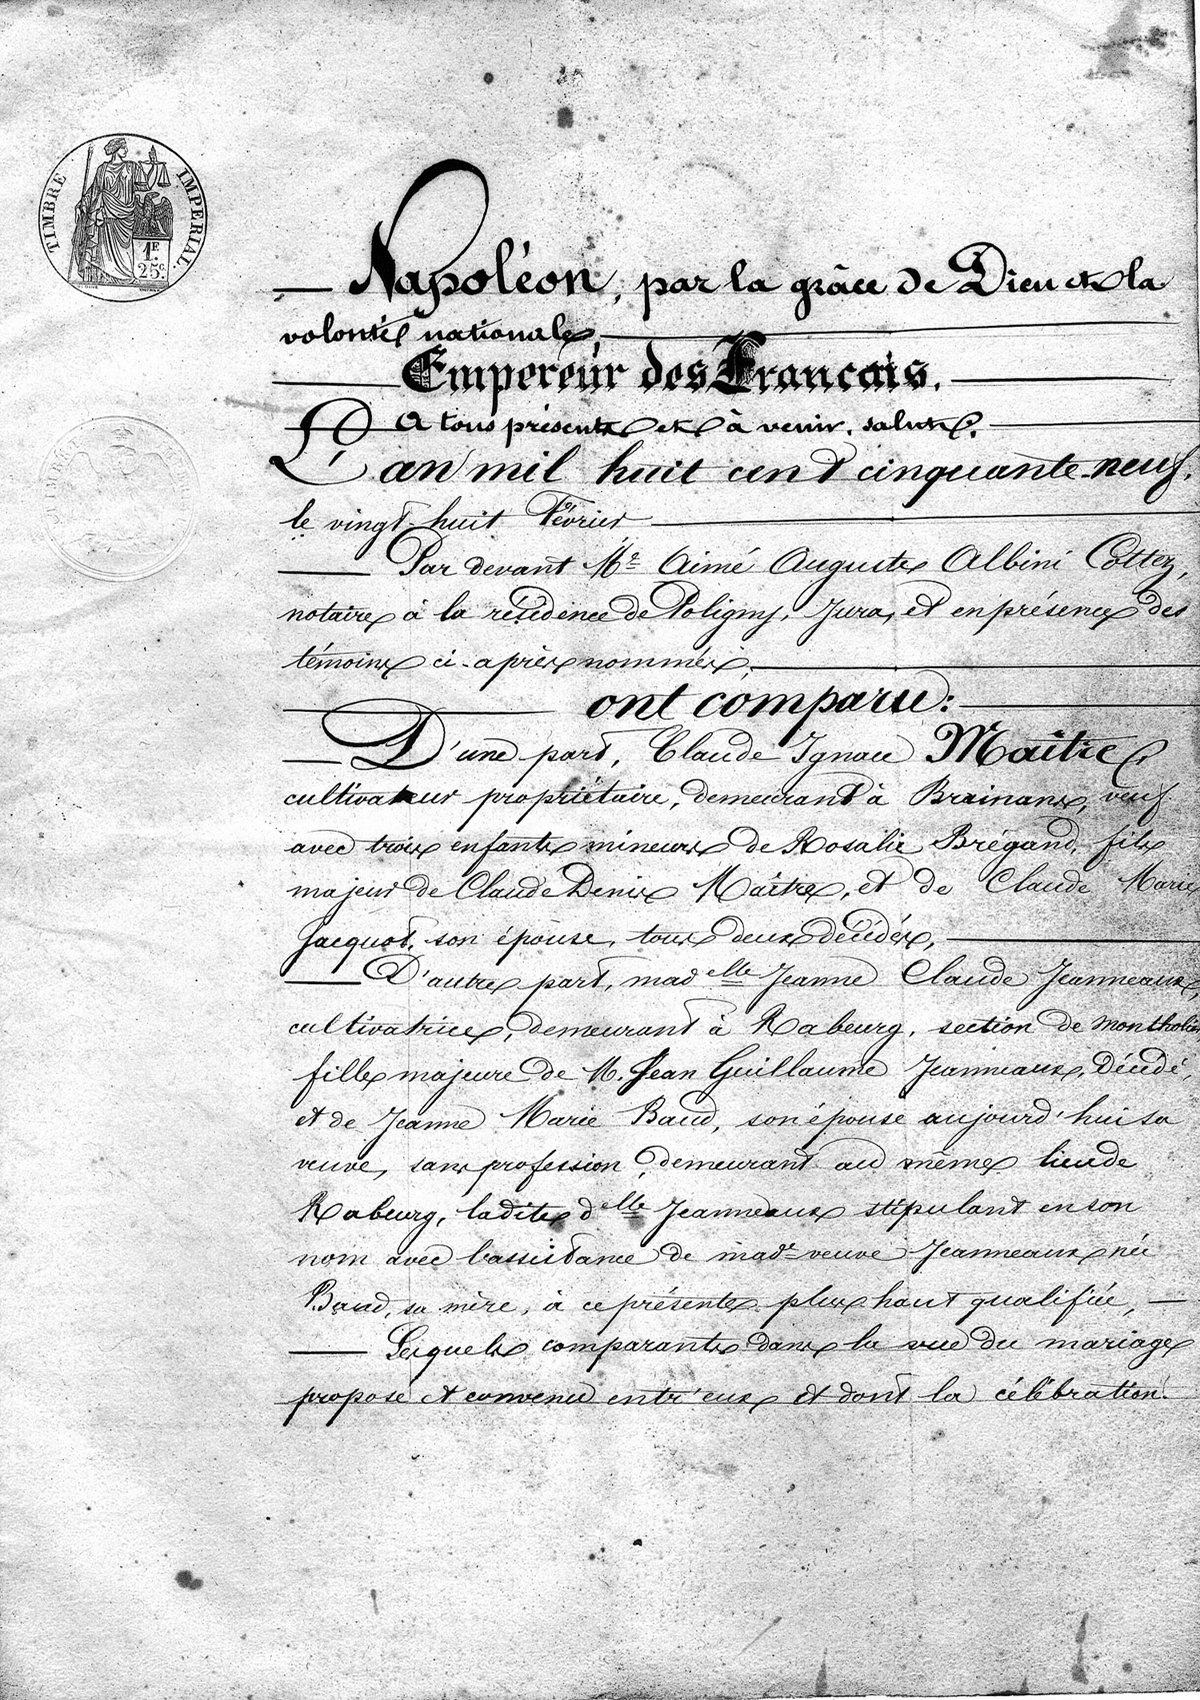 TIMBRE IMPERIAL.
1F
25c.
Napoléon, par la grâce de Dieu et la
volonté nationale,
Empereur des Français.
A tous présents et à venir, salut.
L'an mil huit cent cinquante-neuf,
le vingt-huit Février
Par devant Mr. Aimé Auguste Albini Cottez,
notaire à la résidence de Poligny, Jura, et en présence des
témoins ci-après nommés,
ont comparu:
D'une part, Claude Ignace Maître,
cultivateur propriétaire, demeurant à Brainans, veuf
avec trois enfants mineurs de Rosalie Brégand, fils
majeur de Claude Denis Maître, et de Claude Marie
Jacquot, son épouse, tous deux décédés,
D'autre part, madelle Jeanne Claude Jeanneaux,
cultivatrice, demeurant à Rabeurg, section de
fille majeure de M. Jean Guillaume Jeanneaux, Décédé,
et de Jeanne Marie Baud, son épouse aujourd'hui sa
veuve, sans profession, demeurant au même lieu de
Rabeurg, ladite delle Jeanneaux stipulant en son
nom avec l'assistance de made veuve Jeanneaux née
Baud, sa mère, à ce présente plus haut qualifiée,
Lesquels comparants dans la vue du mariage
proposé et convenu entr'eux et dont la célébration